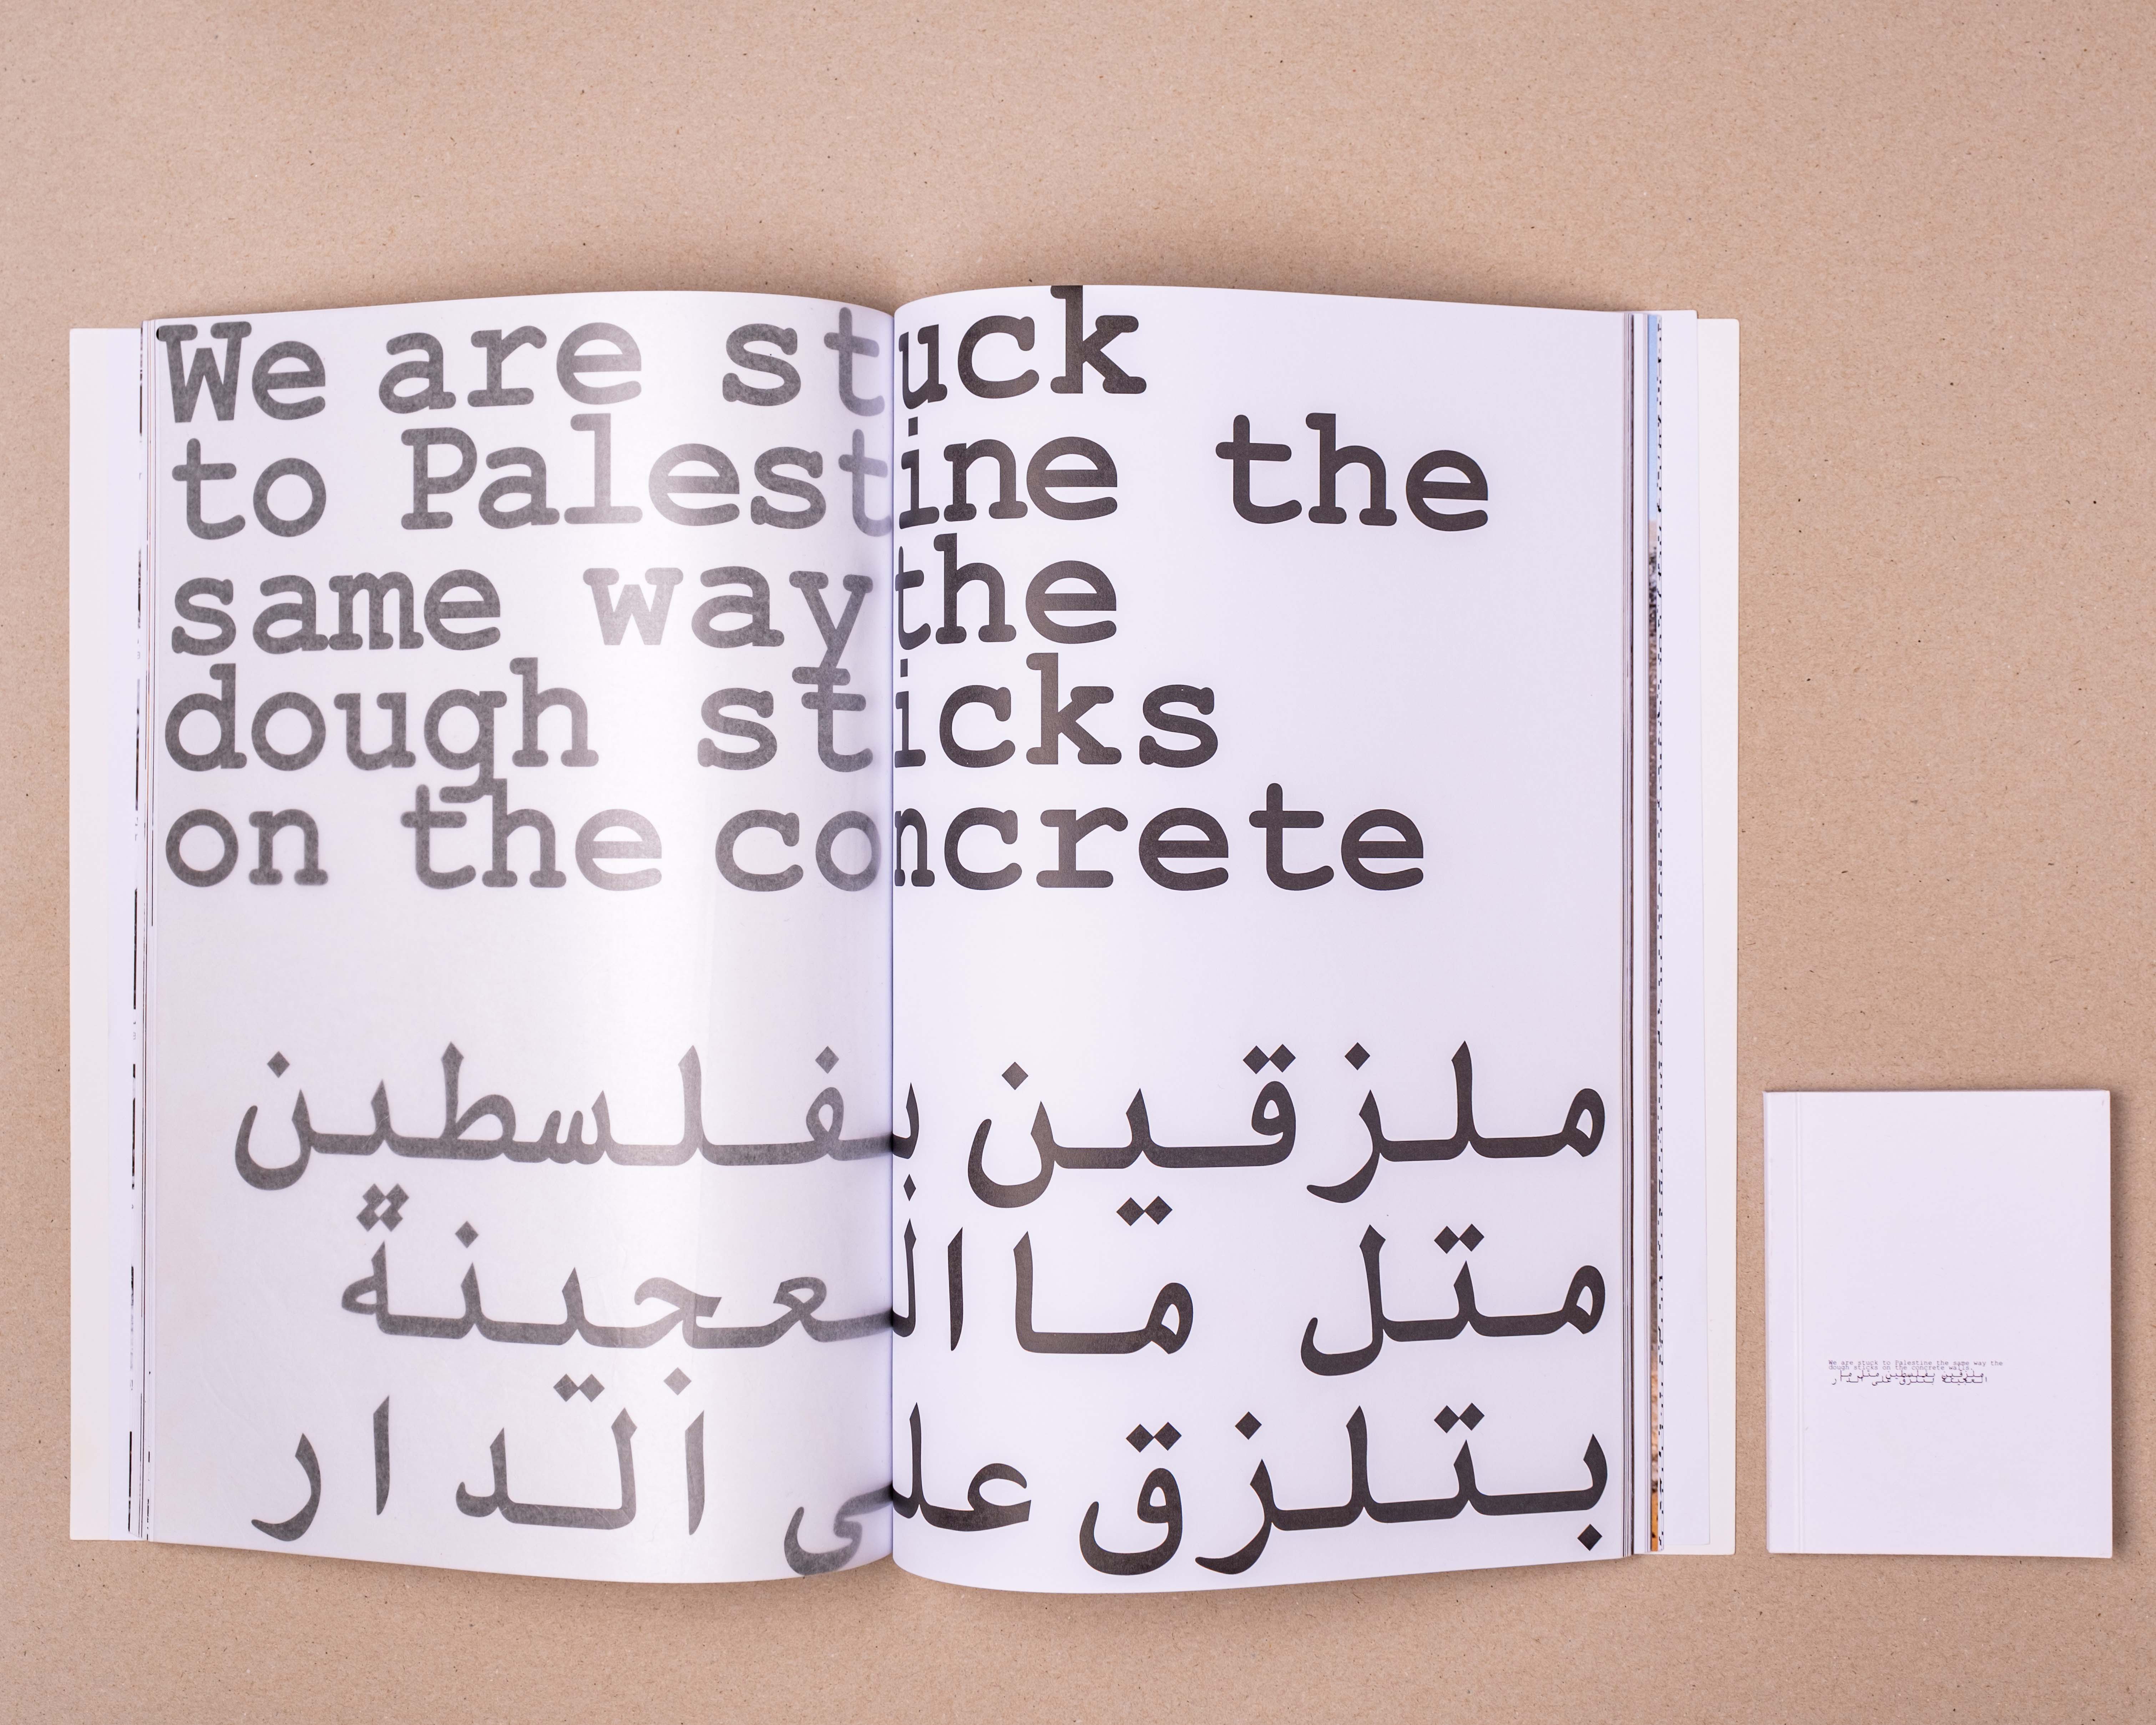 We are stuck
to Palestine the
same way the
dough sticks
on the concrete
ملزقين بفلسطين
متل ما العجينة
بتلزق على الدار
We are stuck to Palestine the same way the
dough sticks on the concrete walls.
ملزقين بفلسطين متل ما
العجينة بتلزق على الدار